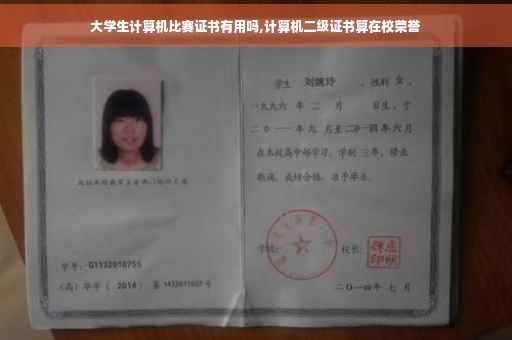 大学生计算机比赛证书有用吗,计算机二级证书算在校荣誉
学生 刘婉玲 ，性别 女 ，
一九九六 年 二 月 日生，于
二〇一一年九 月至二〇一四年六月
在本校高中部学习，学制 三年，修业
期满，成绩合格，准予毕业。
学校：
校长：
学号：G1132010755
（高）毕字（ 2014 ）第 1432011027 号
二〇一四年 七 月